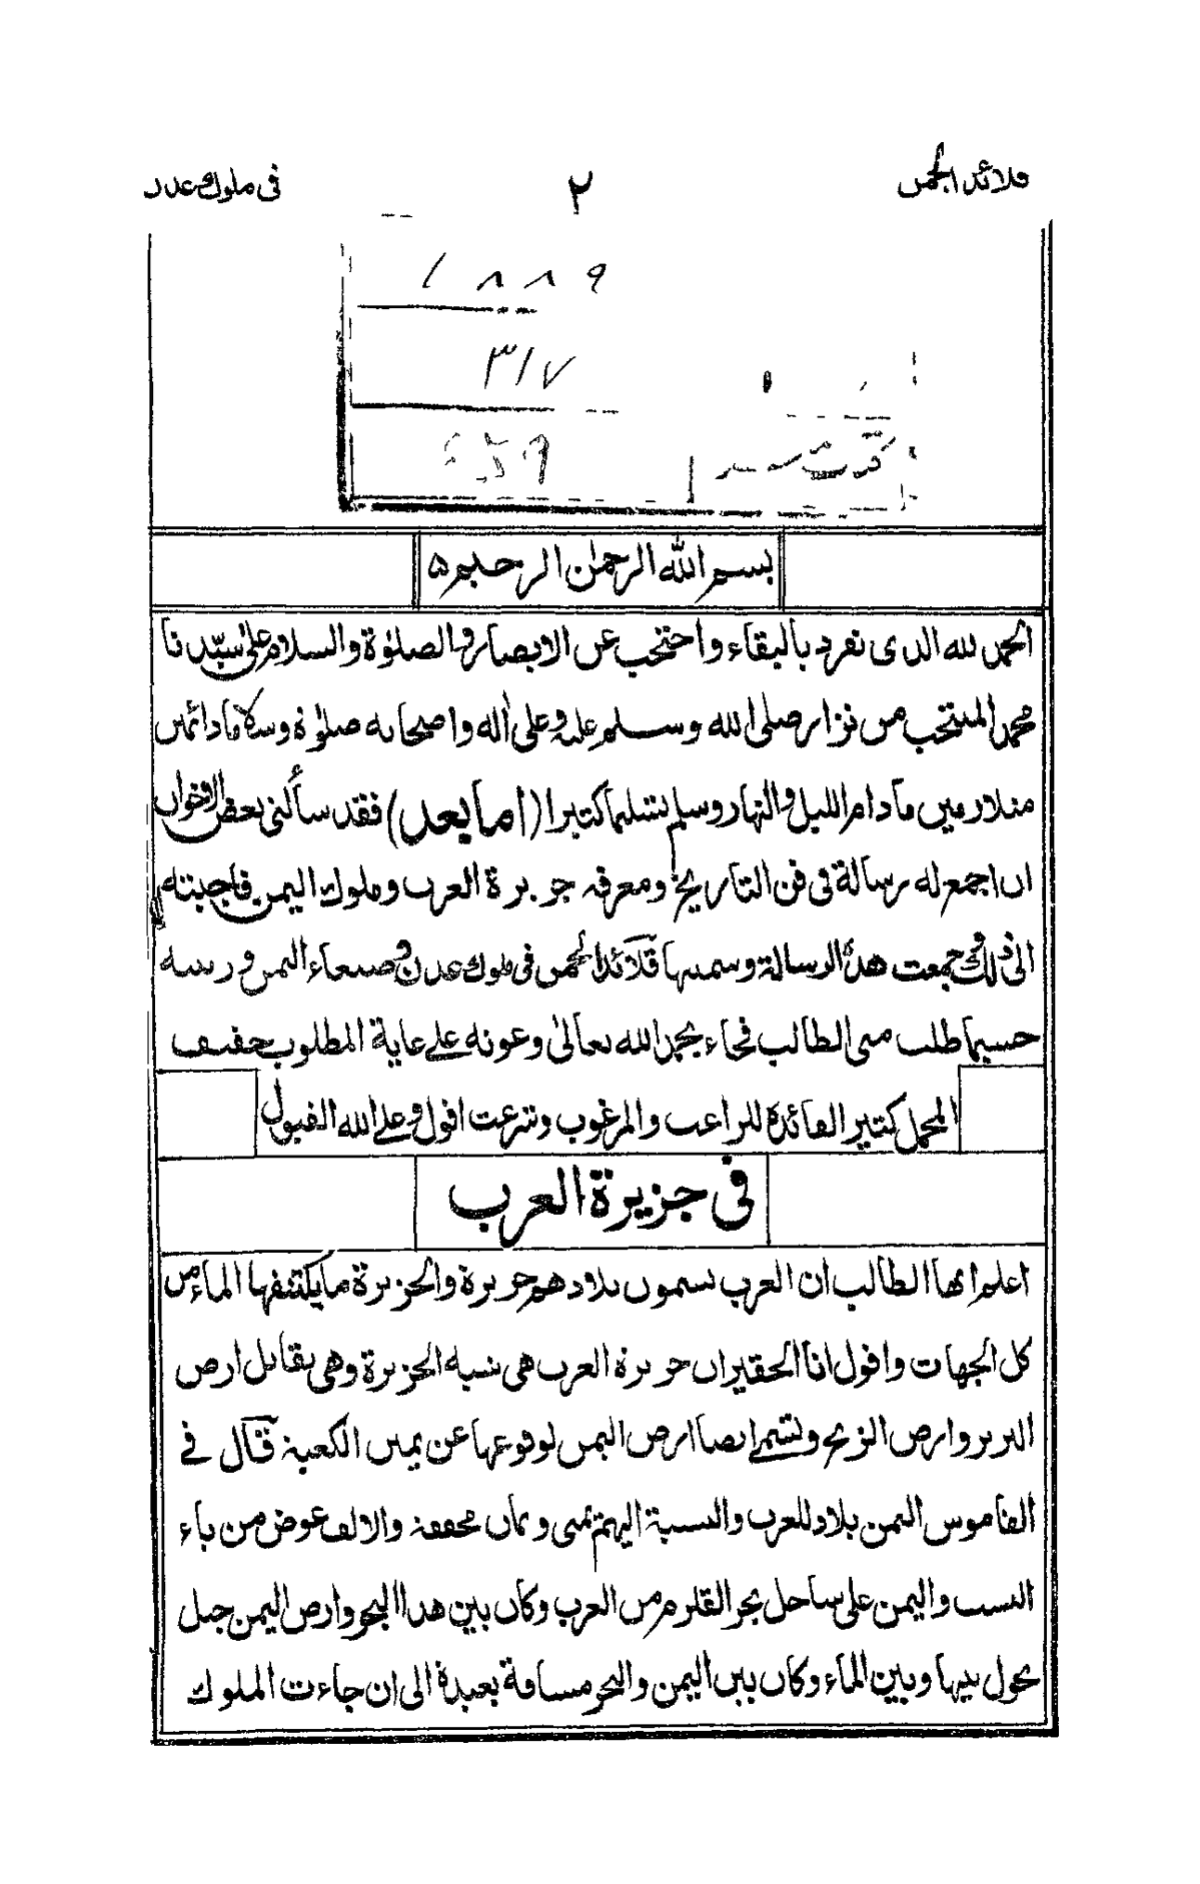 قلائد الجمن ٢ فى ملوك عدن
١٨٨٩
٣١٧
بسم الله الرحمن الرحيم ٥
الحمد لله الذى تفرد بالبقاء واحتجب عن الابصار والصلوٰة والسلام على سيّدنا
محمد المنتخب من نزار صلى الله وسلم عليه وعلى اٰله واصحابه صلوٰة وسلاما دائمين
متلازمين مادام الليل والنهار وسلم تسليما كثيرا (اما بعد) فقد سألنى بعض الاخوان
ان اجمع له رسالة فى فن التاريخ ومعرفة جزيرة العرب وملوك اليمن فاجبته
الى ذلك وجمعت هذه الرسالة وسميتها قلائد الجمن فى ملوك عدن وصنعاء اليمن ورتبته
حسبما طلب منى الطالب فجاء بحمد الله تعالىٰ وعونه على غاية المطلوب خفيف
المحمل كثير الفائدة للراغب والمرغوب وشرعت اقول وعلى الله القبول
فى جزيرة العرب
اعلم ايها الطالب ان العرب يسمون بلادهم جزيرة والجزيرة مايكتنفها الماء من
كل الجهات واقول انا الحقير ان جزيرة العرب هى شبه الجزيرة وهى تقابل ارض
البربر وارض الزنج وتسمى ايضا ارض اليمن لوقوعها عن يمين الكعبة قال فى
القاموس اليمن بلاد للعرب والنسبة اليهم يمنى ويمان مخففة والالف عوض من ياء
النسب واليمن على ساحل بحر القلزم من العرب وكان بين هذا البحر وارض اليمن جبل
يحول بينها وبين الماء وكان بين اليمن والبحر مسافة بعيدة الى ان جاءت الملوك